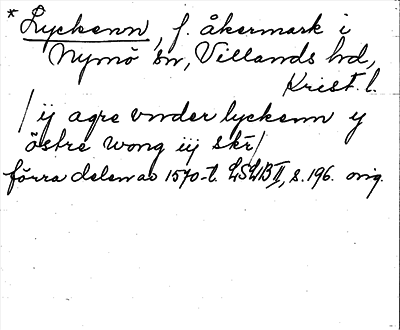 * Lyckenn, f. åkermark i
Nymö sn, Villands hd,
Krist. l.
/ ij agre vnder lyckenn y
östre wong iij skr/
förra delen av 1570-t. LSLB II, s. 196. orig.